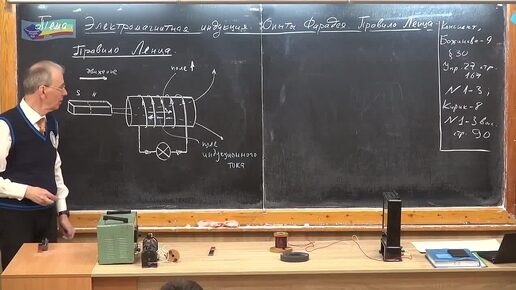 Тема Электромагнитная индукция. Опыты Фарадея Правило Ленца
Правило Ленца.
движение
поле
S N
поле
индукционного
тока
Конспект,
Божинова-9
§ 30
Упр. 27 стр.
167
N 1-3;
Кирик-8
N 1-3
стр. 90